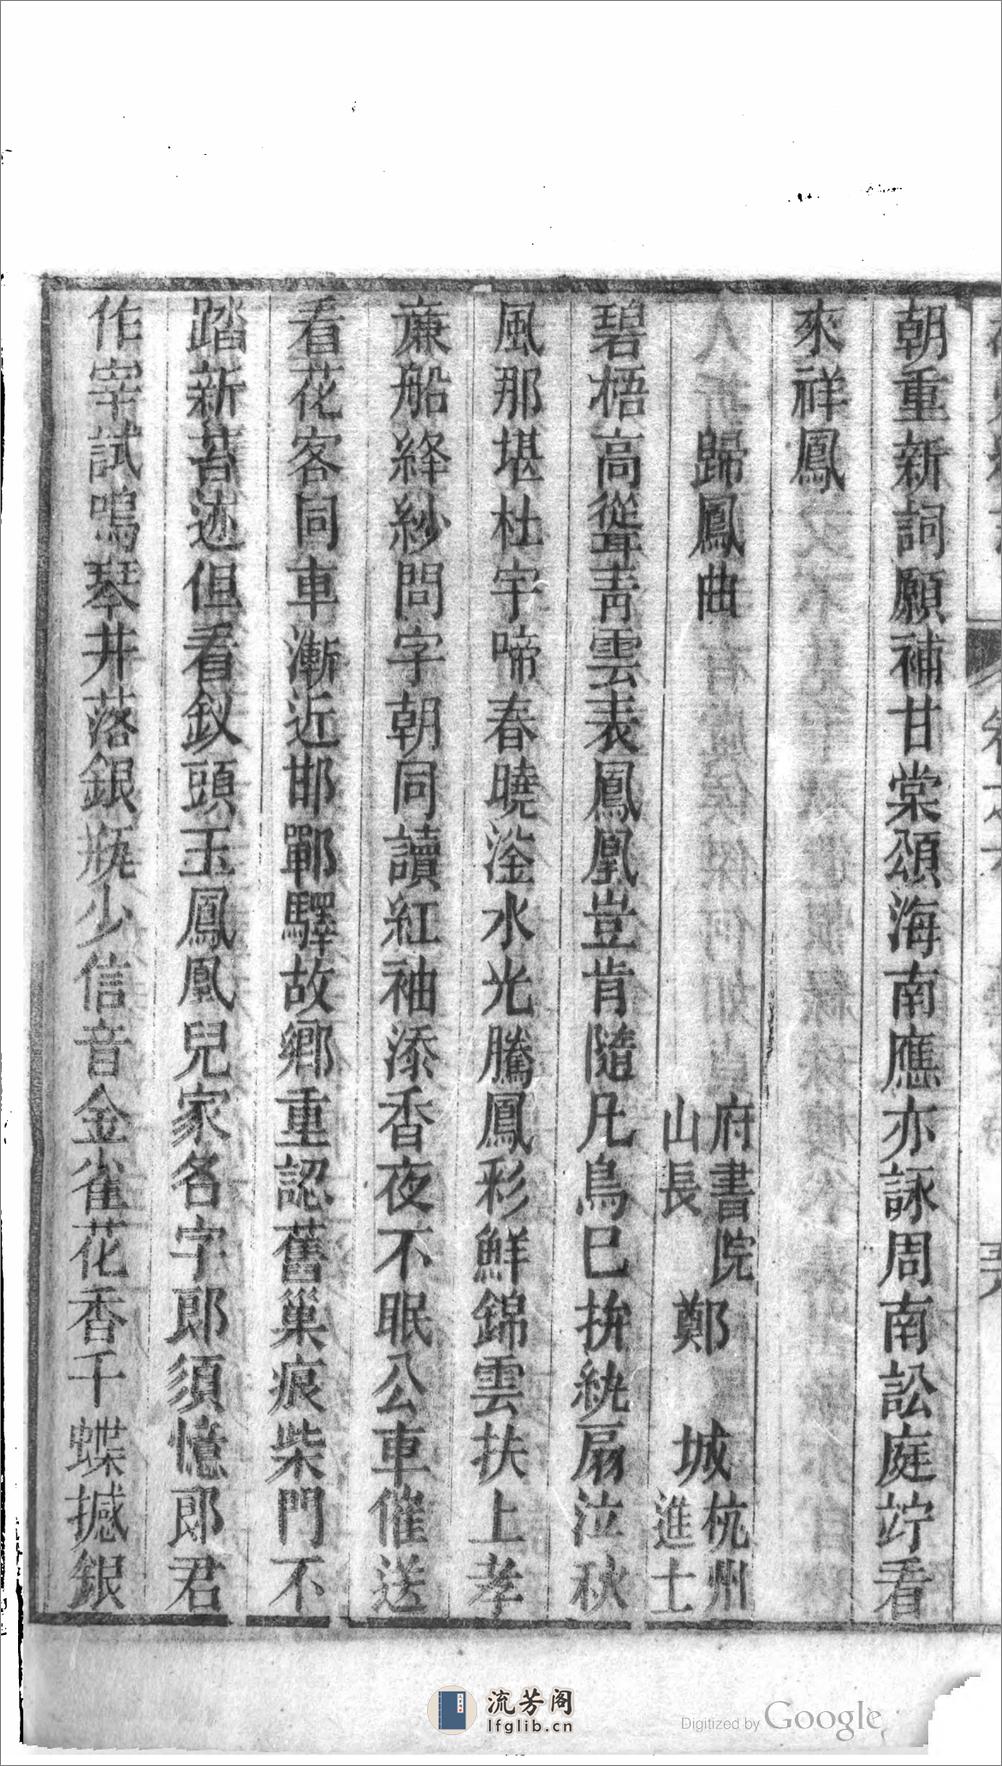 朝重新詞願補甘棠頌海南應亦詠周南訟庭竚看
來祥鳳
歸鳳曲
府書院山長鄭城杭州進士
碧梧高聳青雲表鳳凰豈肯隨凡鳥已拚紈扇泣秋
風那堪杜宇啼春曉淦水光騰鳳彩鮮錦雲扶上孝
廉船絳紗問字朝同讀紅袖添香夜不眠公車催送
看花客同車漸近邯鄲驛故鄉重認舊巢痕柴門不
踏新苔迹但看釵頭玉鳳凰兒家名字郞須憶郞君
作宰試鳴琴井落銀瓶少信音金雀花香千蝶撼銀
卷六
流芳阁
lfglib.cn
Digitized by Google